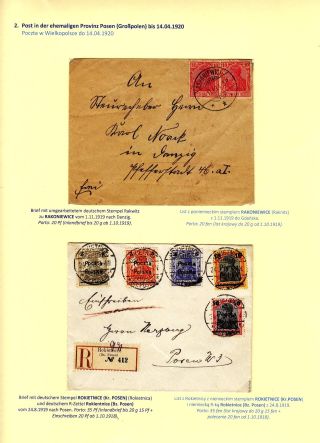 2. Post in der ehemaligen Provinz Posen (Großpolen) bis 14.04.1920
Poczta w Wielkopolsce do 14.04.1920
An
Herrn
Karl Noack
in Danzig
Pfefferstadt
frei
Brief mit umgearbeitetem deutschem Stempel Rakwitz
zu RAKONIEWICE vom 1.11.1919 nach Danzig.
Porto: 20 Pf (Inlandbrief bis 20 g ab 1.10.1919).
List z poniemieckim stemplem RAKONIEWICE (Rakwitz)
z 1.11.1919 do Gdańska.
Porto: 20 fen (list krajowy do 20 g od 1.10.1919).
Poczta
Polska
Poczta
Polska
Poczta
Polska
Einschreiben
Herrn
Posen W 3
R
Rokietnice
(Bz. Posen)
№ 412
Brief mit deutschem Stempel ROKIETNICE (Kr. POSEN) (Rokietnica)
und deutschem R-Zettel Rokietnice (Bz. Posen)
vom 24.8.1919 nach Posen. Porto: 35 Pf (Inlandbrief bis 20 g 15 Pf +
Einschreiben 20 Pf ab 1.10.1918).
List z Rokietnicy z niemieckim stemplem ROKIETNICE (Kr. POSEN)
i niemiecką R-ką Rokietnice (Bz. Posen) z 24.8.1919.
Porto: 35 fen (list krajowy do 20 g 15 fen +
polecenie 20 fen od 1.10.1918).